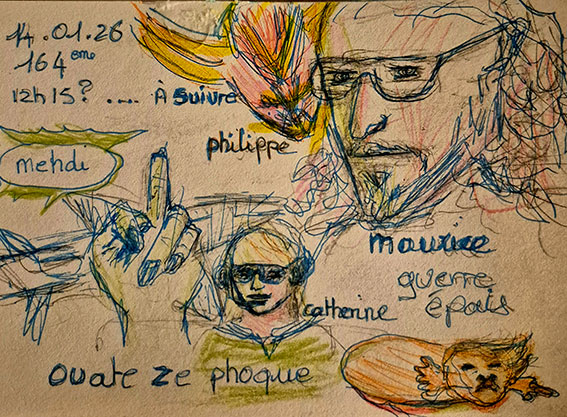 14.01.26
164eme
12h15? .... À suivre
philippe
mehdi
maurice
guerre
épais
catherine
ouate ze phoque